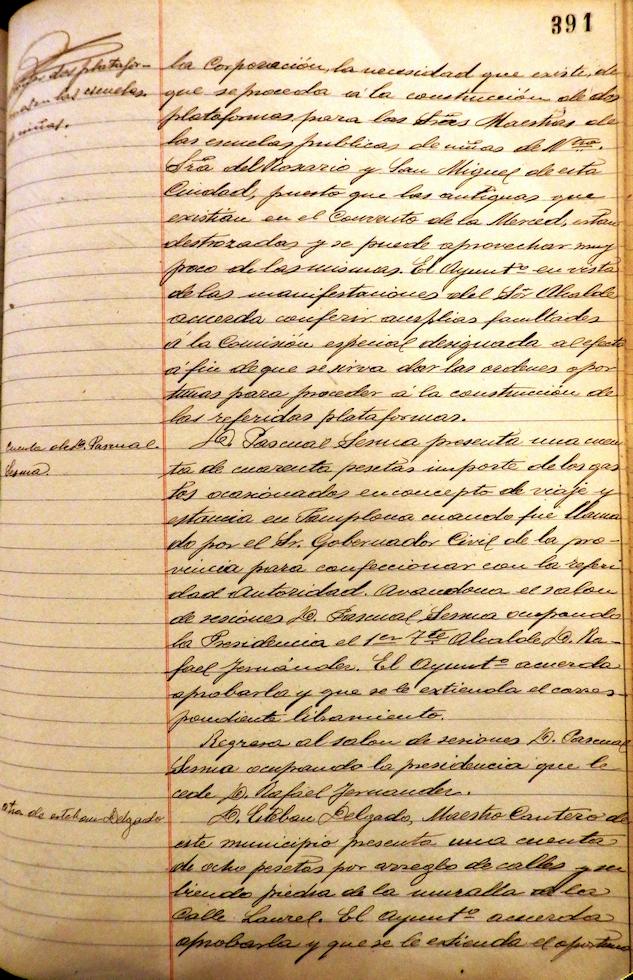 391
dos platafor-
mas en las escuelas
niñas.
la Corporación, la necesidad que existe, de
que se proceda á la construcción de dos
plataformas para las Sras Maestras de
las escuelas publicas de niñas de Ntra.
Sra del Rosario y San Miguel de esta
Ciudad, puesto que las antiguas que
existian en el Convento de la Merced, estan
destrozadas y se puede aprovechar muy
poco de las mismas. El Ayuntº en vista
de las manifestaciones del Sor Alcalde
acuerda conferir amplias facultades
á la Comisión especial designada al efecto
á fin de que se sirva dar las ordenes opor
tunas para proceder á la construcción de
las referidas plataformas.
Cuenta de D. Pascual
Sesma.
D. Pascual Sesma presenta una cuen
ta de cuarenta pesetas importe de los gas
tos ocasionados en concepto de viaje y
estancia en Pamplona cuando fue llama
do por el Sr. Gobernador Civil de la pro-
vincia para confeccionar con la referi
dad Autoridad. Avandona el salon
de sesiones D. Pascual Sesma ocupando
la Presidencia el 1er Tte Alcalde D. Ra-
fael Jernández. El Ayuntº acuerda
aprobarla y que se le extienda el corres
pondiente libramiento.
Regresa al salon de sesiones D. Pascual
Sesma ocupando la presidencia que le
cede D. Rafael Jernandez.
otra de esteban Delgado
D. Estéban Delgado, Maestro Cantero de
este municipio presenta una cuenta
de ocho pesetas por arreglo de calles y su
biendo piedra de la muralla de la
Calle Laurel. El Ayuntº acuerda
aprobarla y que se le extienda el oportuno